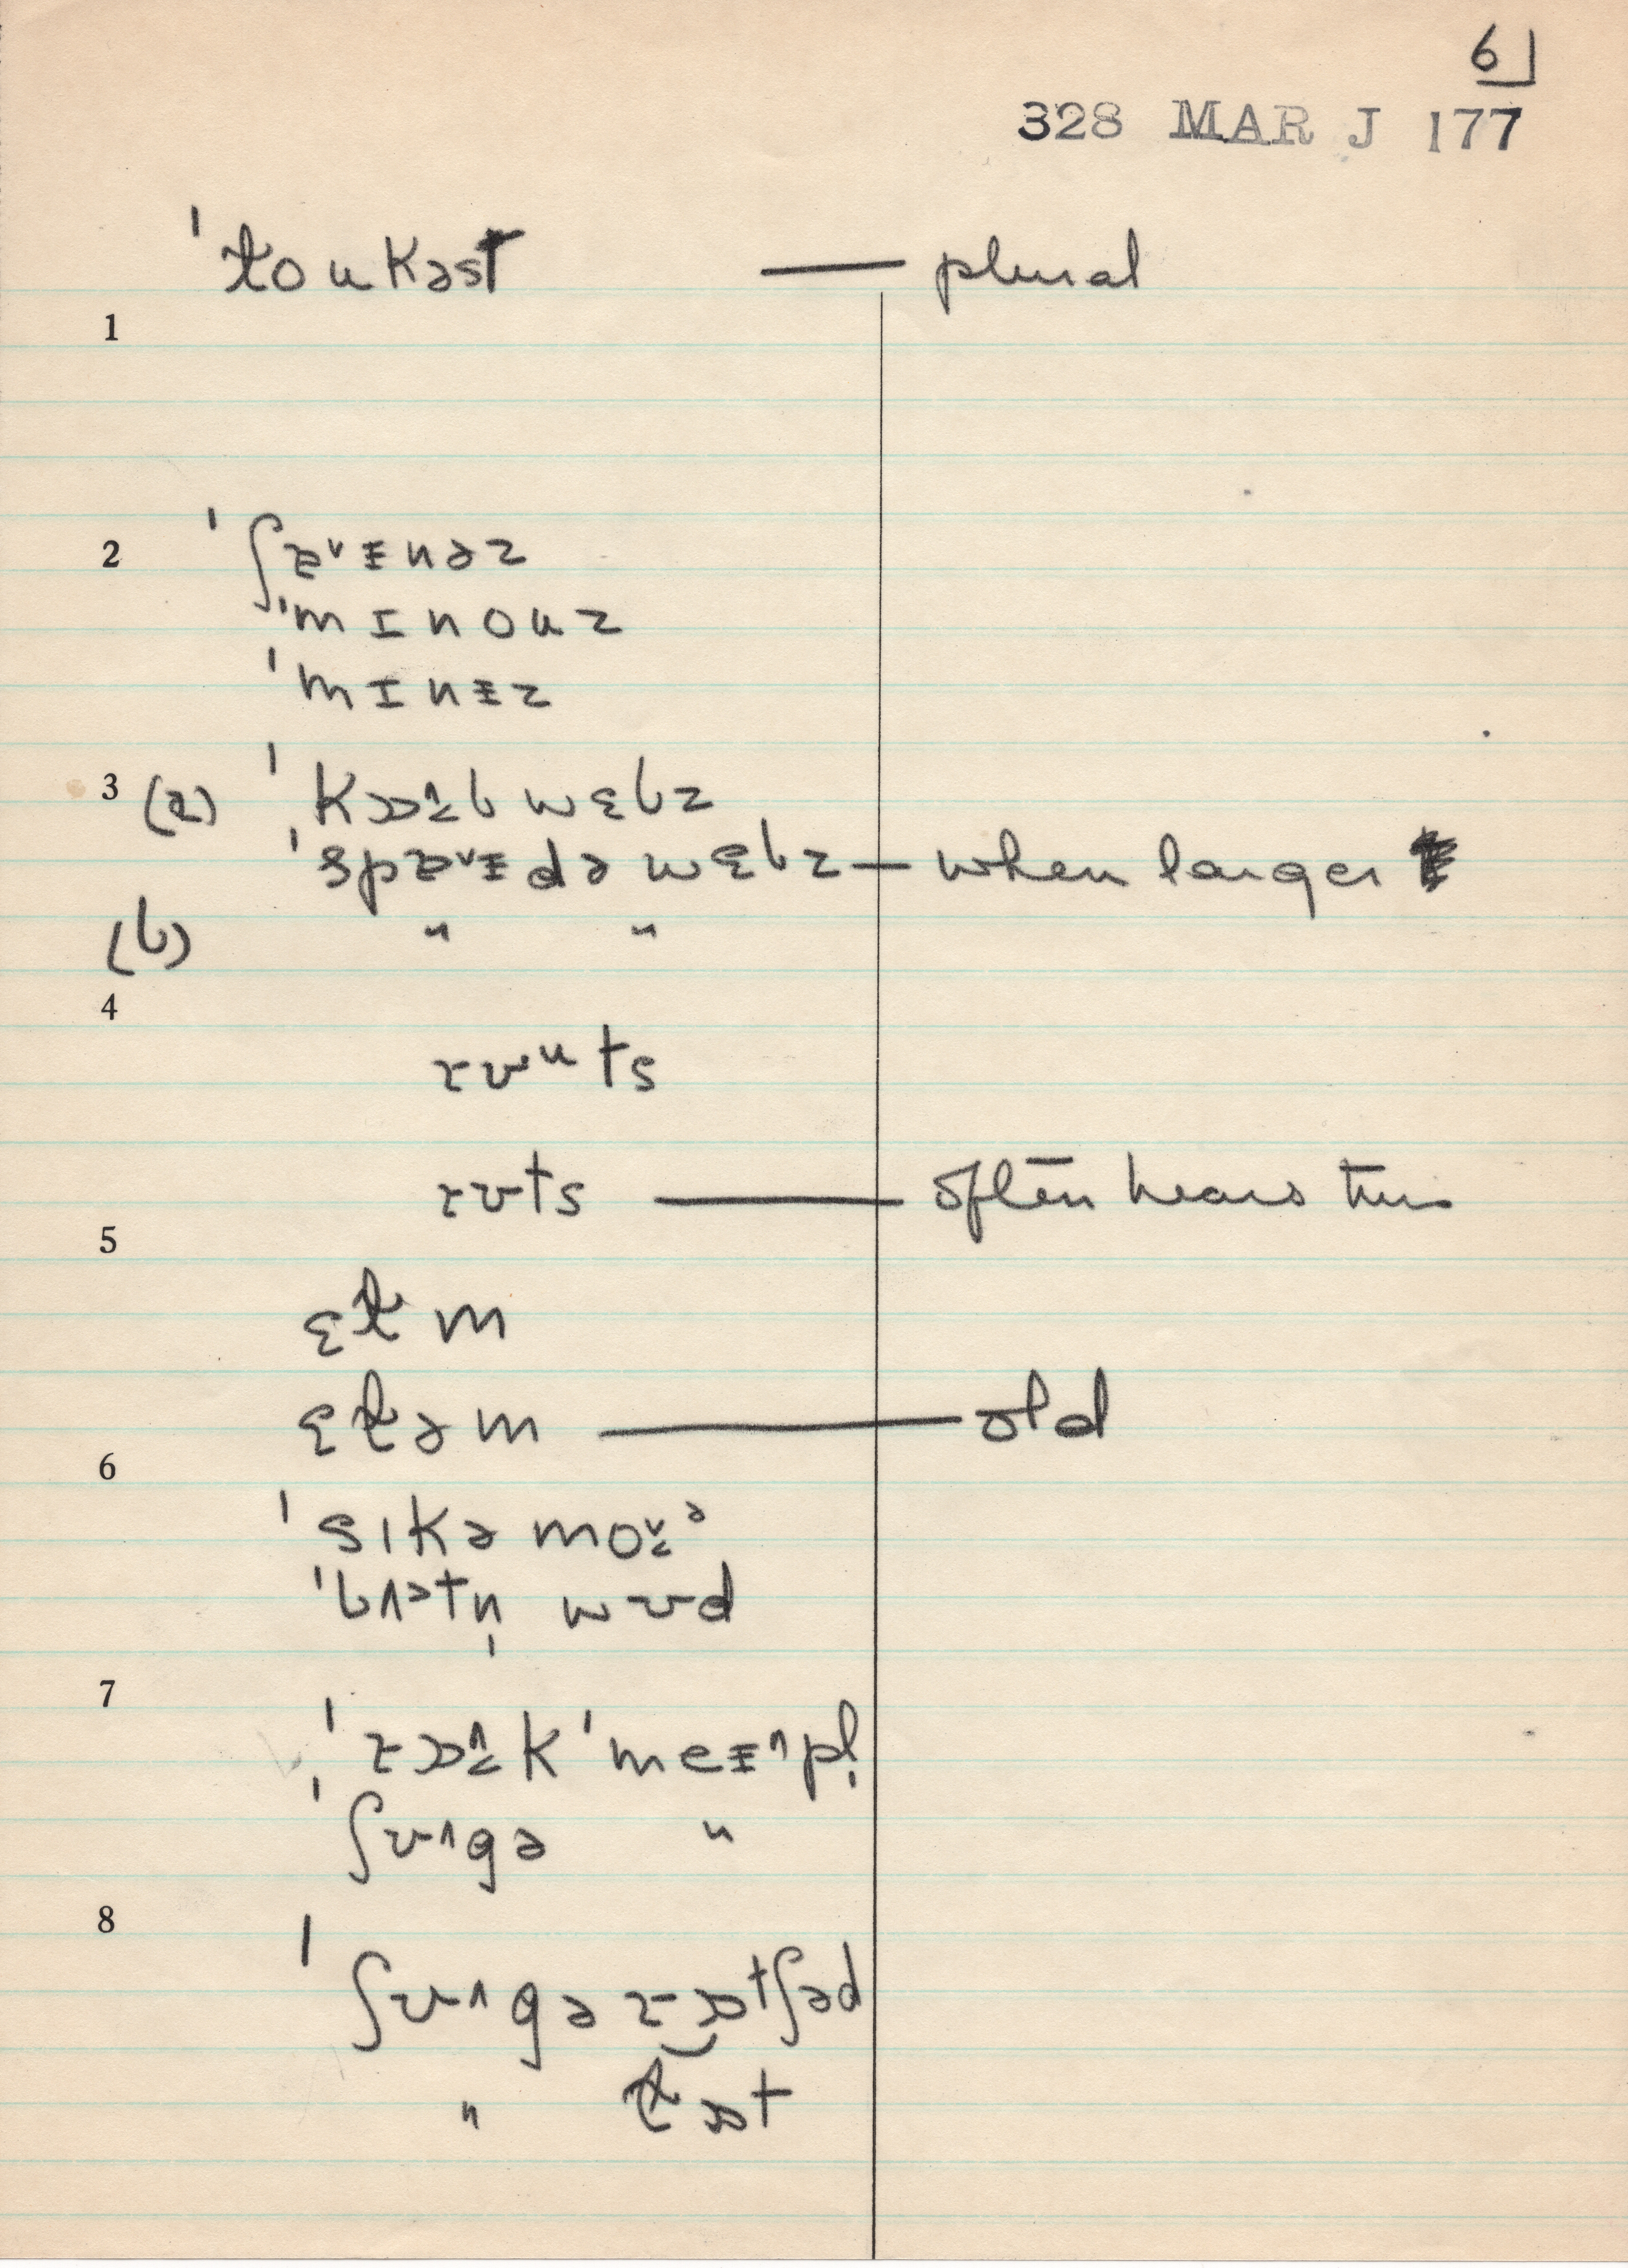 6
328 MAR J 177
ˈtoukəst — plural
1
2 ˈʃɐˇɨnəz
ˈmɪnouz
ˈmɪnɨz
3 (a) ˈkɒɔ̂bwɛbz
ˈspɐˇɨdəwɛbz — when larger
(b) " "
4
rʊᵘts
rʊts — often hears this
5
ɛtm
ɛtəm — old
6
ˈsɪkəmoɔ̌ᵊ
ˈbʌᵊtn̩wʊd
7
ˈrɒɔ̂kˈmeɨ^pl̩
ˈʃʊ^gə "
8
ˈʃʊ^gərɒtʃəd
" tɒt